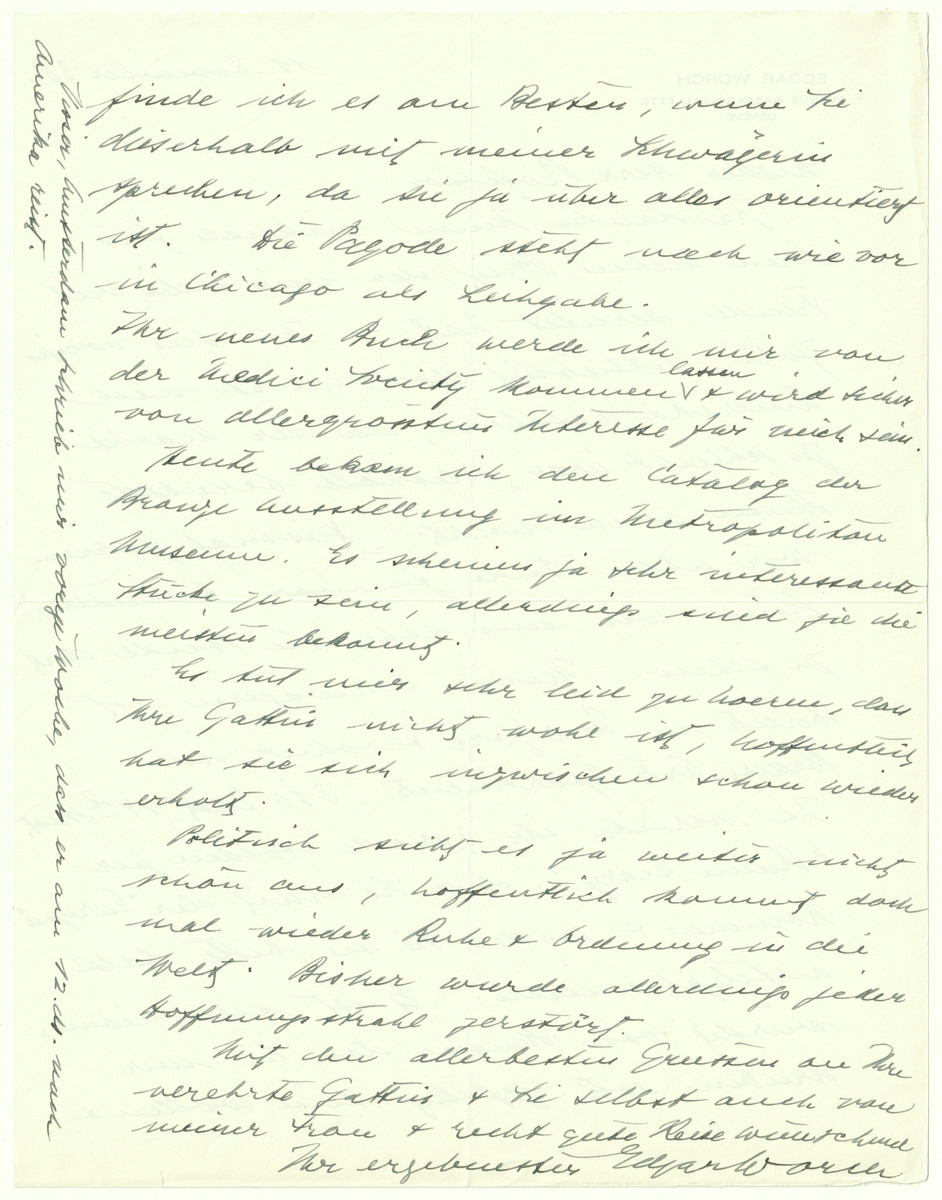 finde ich es am Besten, wenn Sie
dieserhalb mit meiner Schwägerin
sprechen, da sie ja über alles orientiert
ist. Die Pagode steht nach wie vor
in Chicago als Leihgabe.
Ihr neues Buch werde ich mir von
der Medici Society kommen lassen & wird sicher
von allergrösstem Interesse für mich sein.
Heute bekam ich den Catalog der
Bronze Ausstellung im Metropolitan
Museum. Es scheinen ja sehr interessante
Stücke zu sein, allerdings sind ja die
meisten bekannt.
Es tut mir sehr leid zu hoeren, dass
Ihre Gattin nicht wohl ist, hoffentlich
hat sie sich inzwischen schon wieder
erholt.
Politisch sieht es ja weiter nicht
schön aus, hoffentlich kommt doch
mal wieder Ruhe & Ordnung in die
Welt. Bisher wurde allerdings jeder
Hoffnungsstrahl zerstört.
Mit den allerbesten Gruessen an Ihre
verehrte Gattin & Sie selbst auch von
meiner Frau & recht gute Reise wünschend
Ihr ergebenster Edgar Worch
Amsterdam schrieb mir vorige Woche, dass er am 12. ds. nach
Amerika reist.